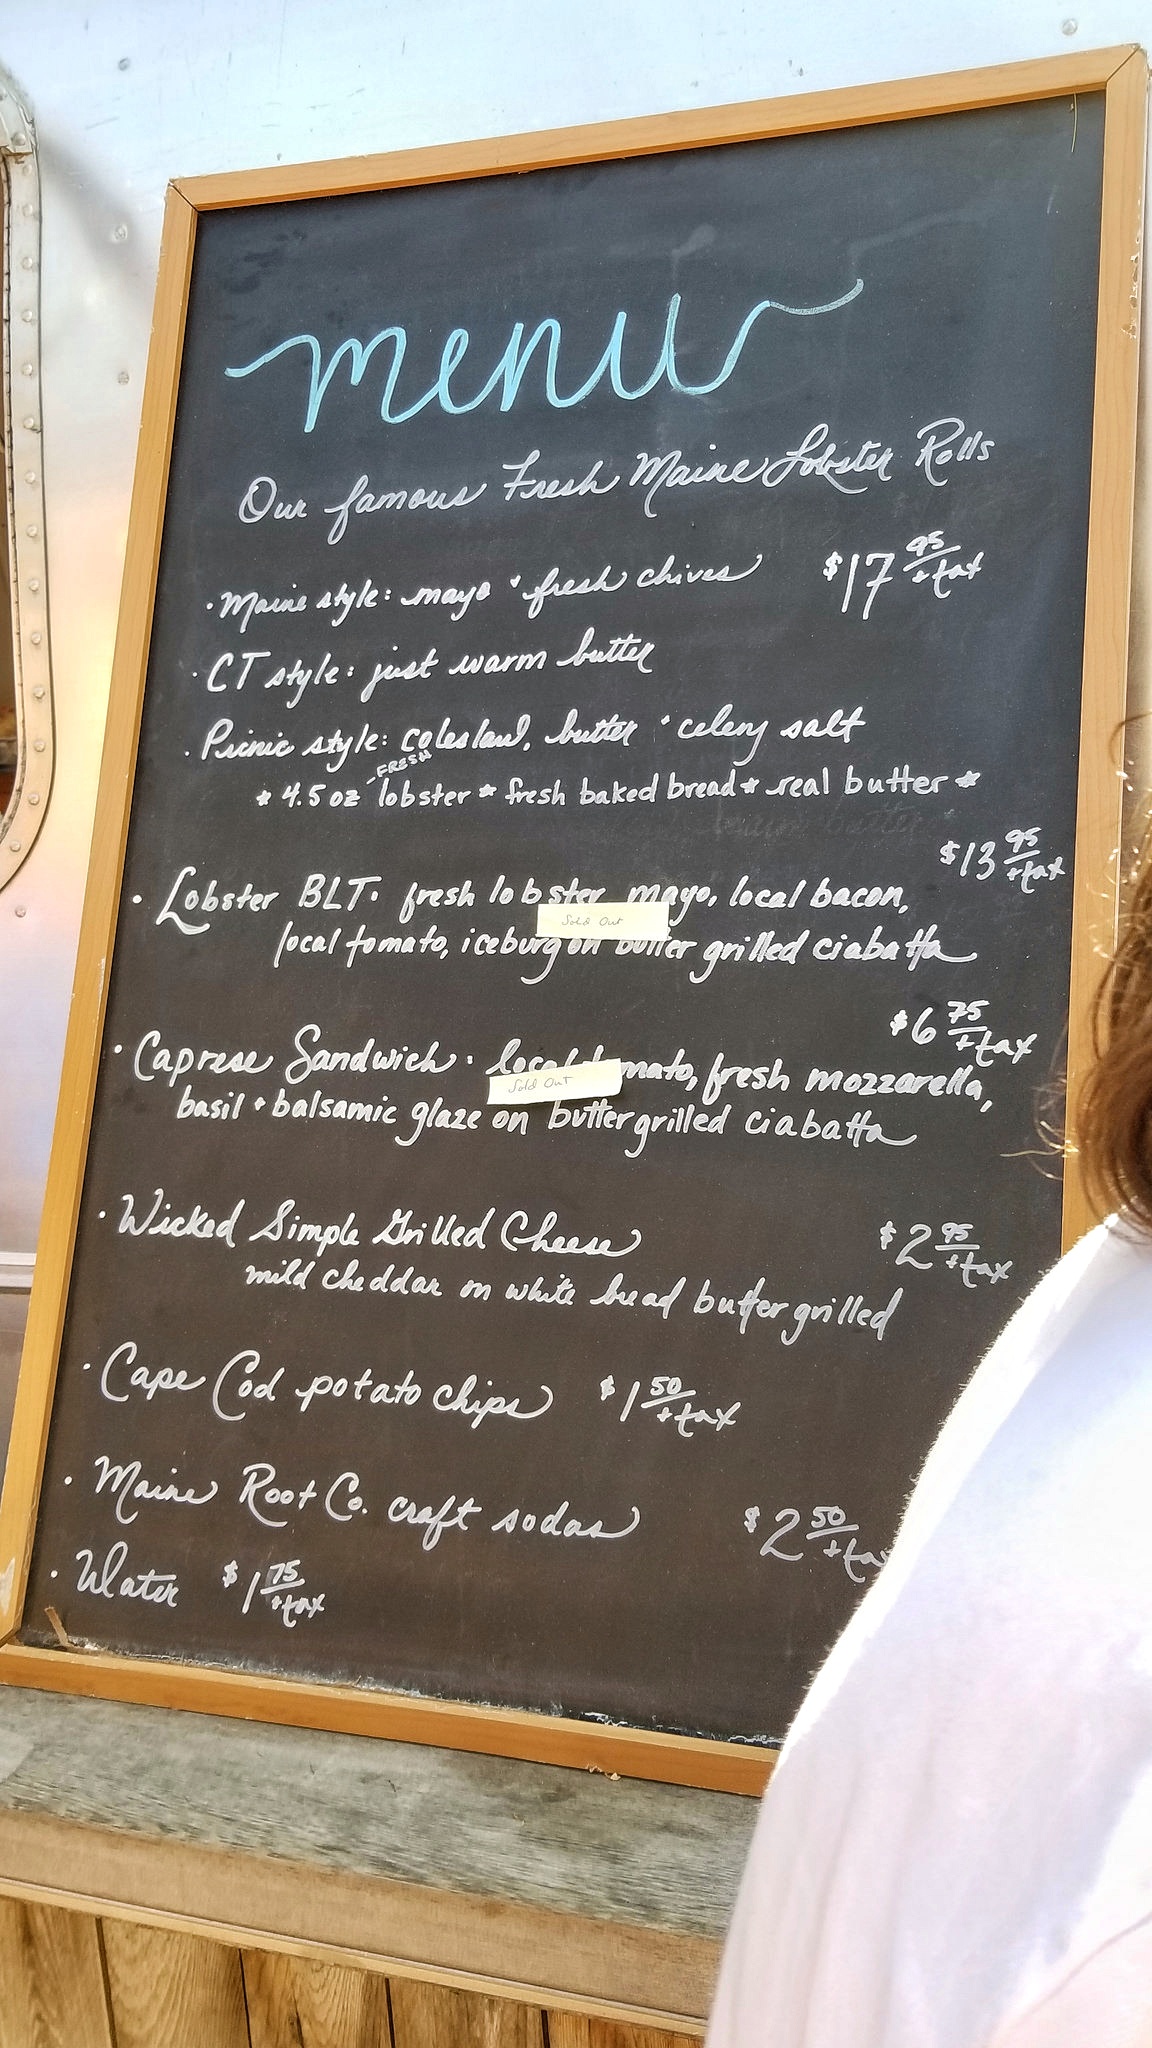 menu
Our famous Fresh Maine Lobster Rolls
• Maine style: mayo + fresh chives $17 95 + tax
• CT style: just warm butter
• Picnic style: coleslaw, butter + celery salt
FRESH
* 4.5 oz lobster * fresh baked bread * real butter *
$13 95 + tax
• Lobster BLT: fresh lobster mayo, local bacon,
Sold Out
local tomato, iceburg on butter grilled ciabatta
$6 75 + tax
• Caprese Sandwich: local tomato, fresh mozzarella,
Sold Out
basil + balsamic glaze on butter grilled ciabatta
• Wicked Simple Grilled Cheese $2 95 + tax
mild cheddar on white bread butter grilled
• Cape Cod potato chips $1 50 + tax
• Maine Root Co. craft sodas $2 50 + ta
• Water $1 75 + tax